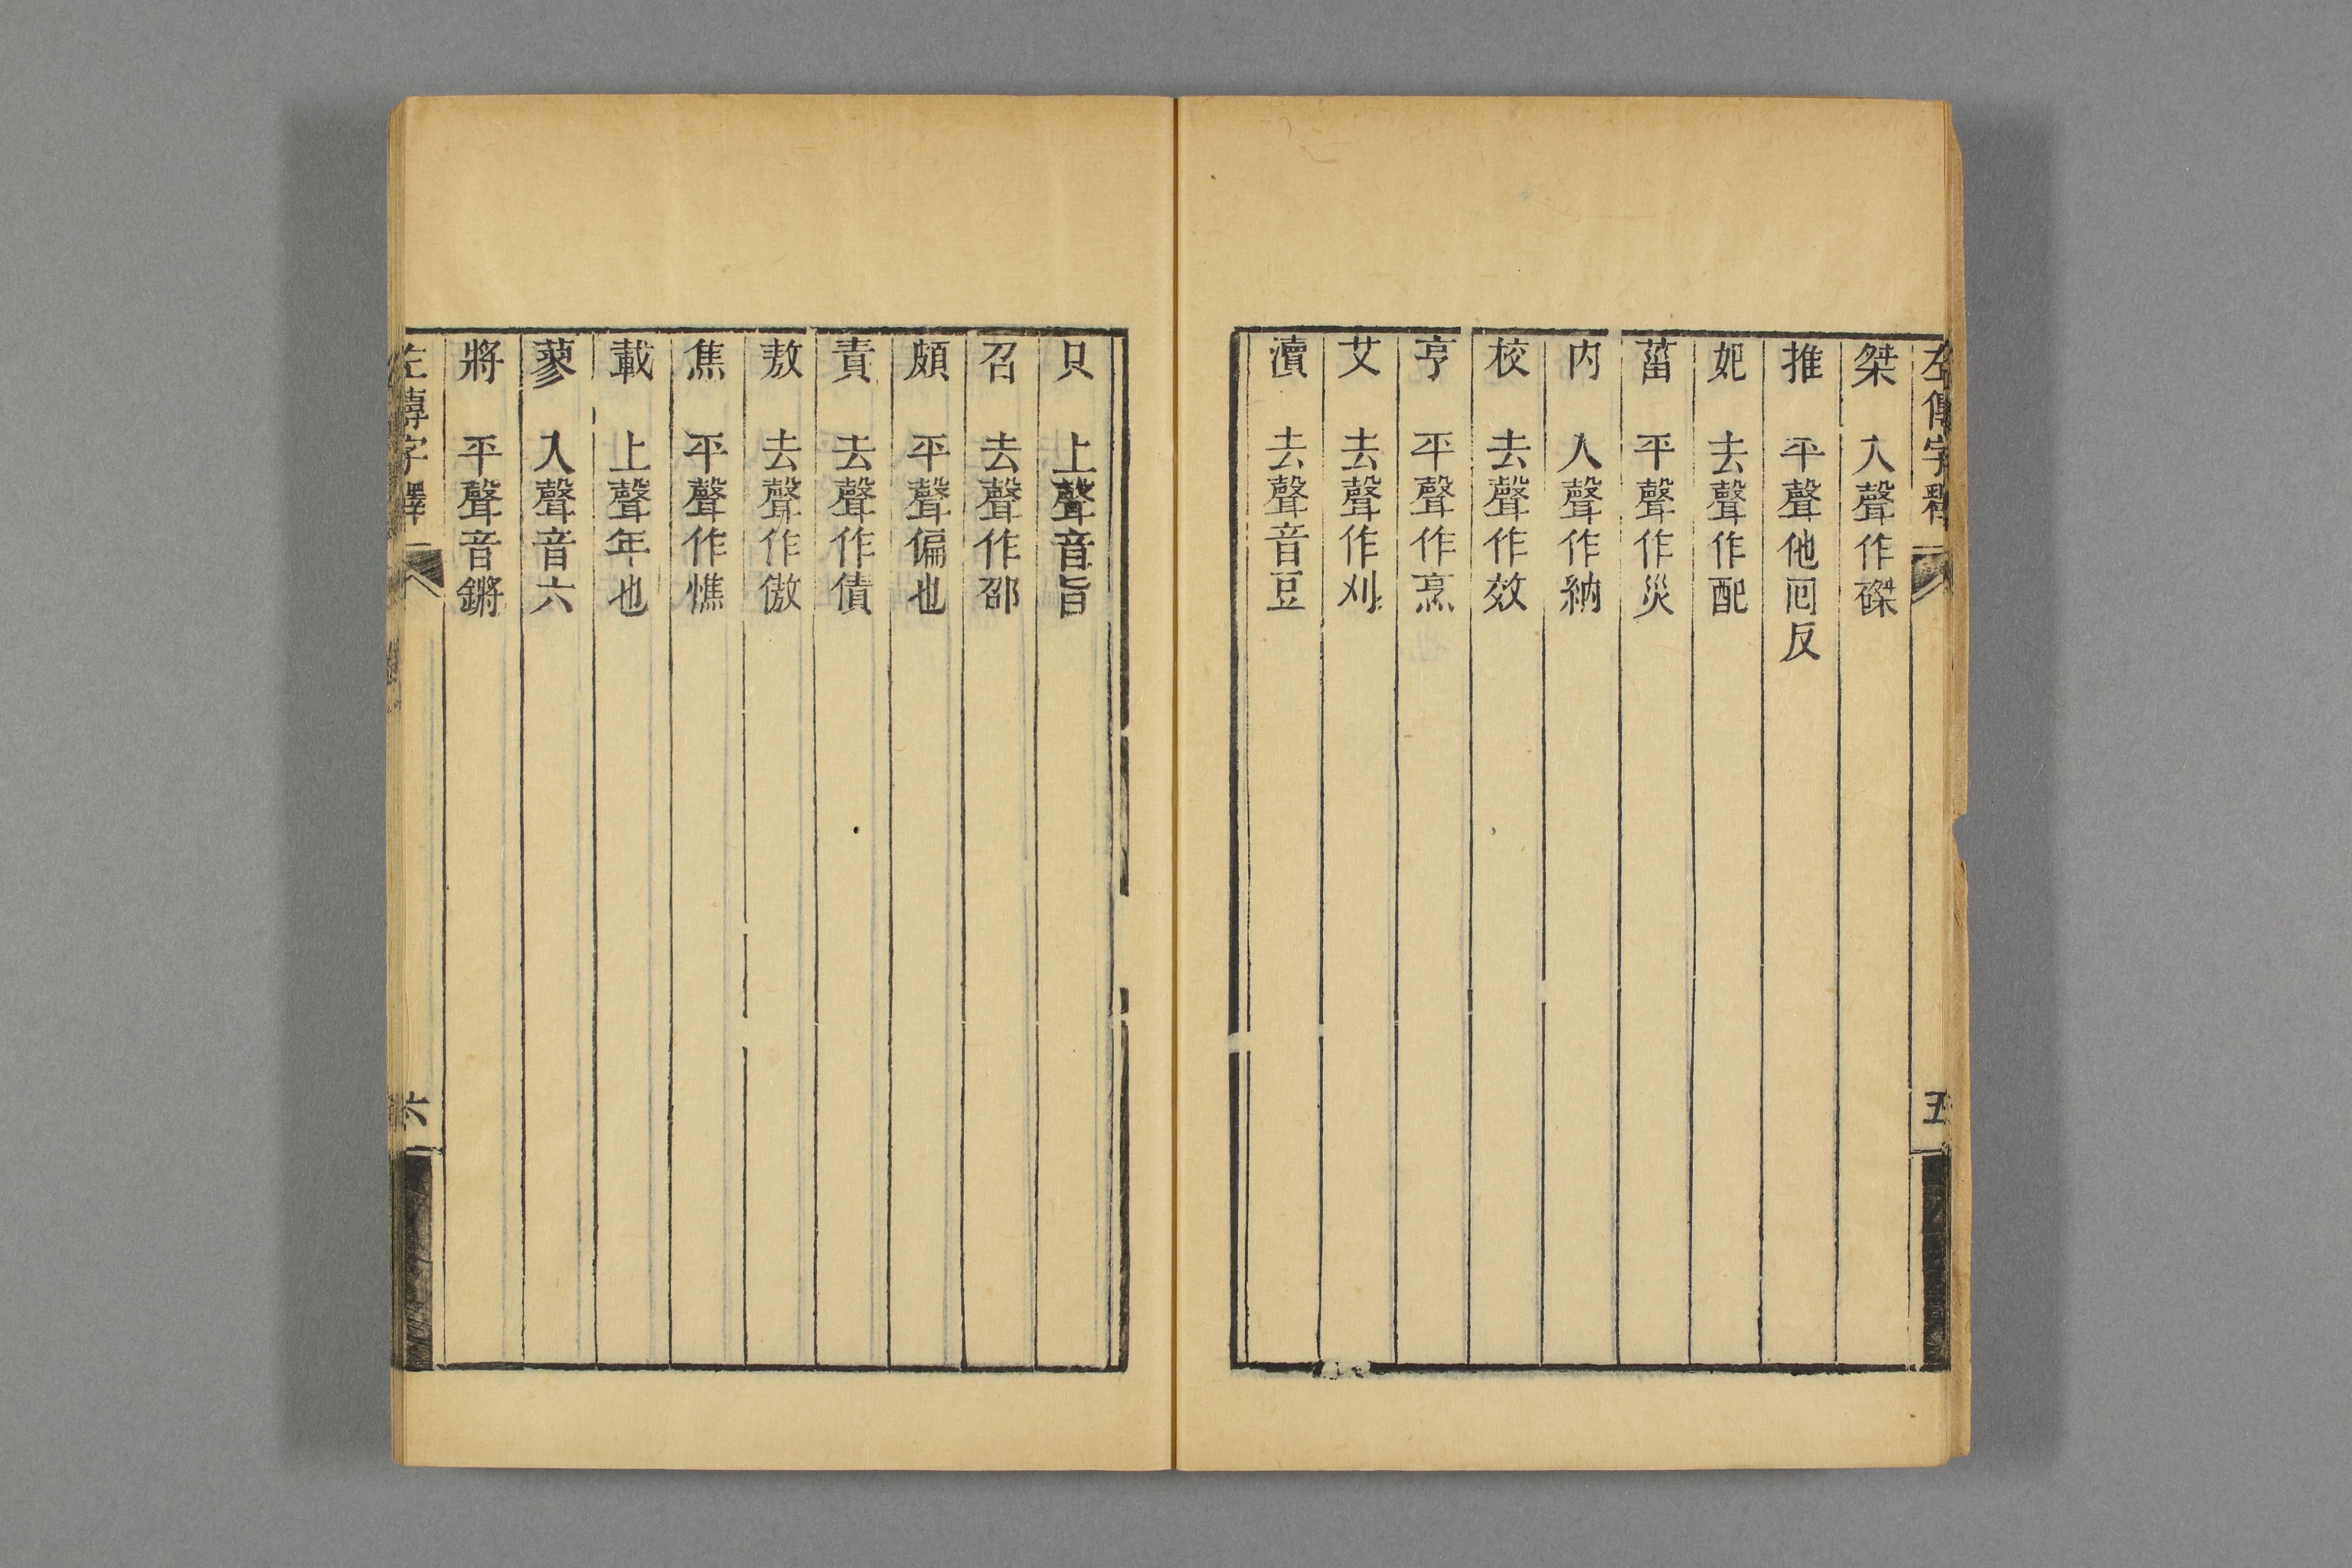 左傳字釋
五
桀 入聲作磔
推 平聲他回反
妃 去聲作配
菑 平聲作災
内 入聲作納
校 去聲作效
亨 平聲作烹
艾 去聲作刈
瀆 去聲音豆
只 上聲音旨
召 去聲作邵
頗 平聲偏也
責 去聲作債
敖 去聲作傲
焦 平聲作憔
載 上聲年也
蓼 入聲音六
將 平聲音鏘
左傳字釋
六